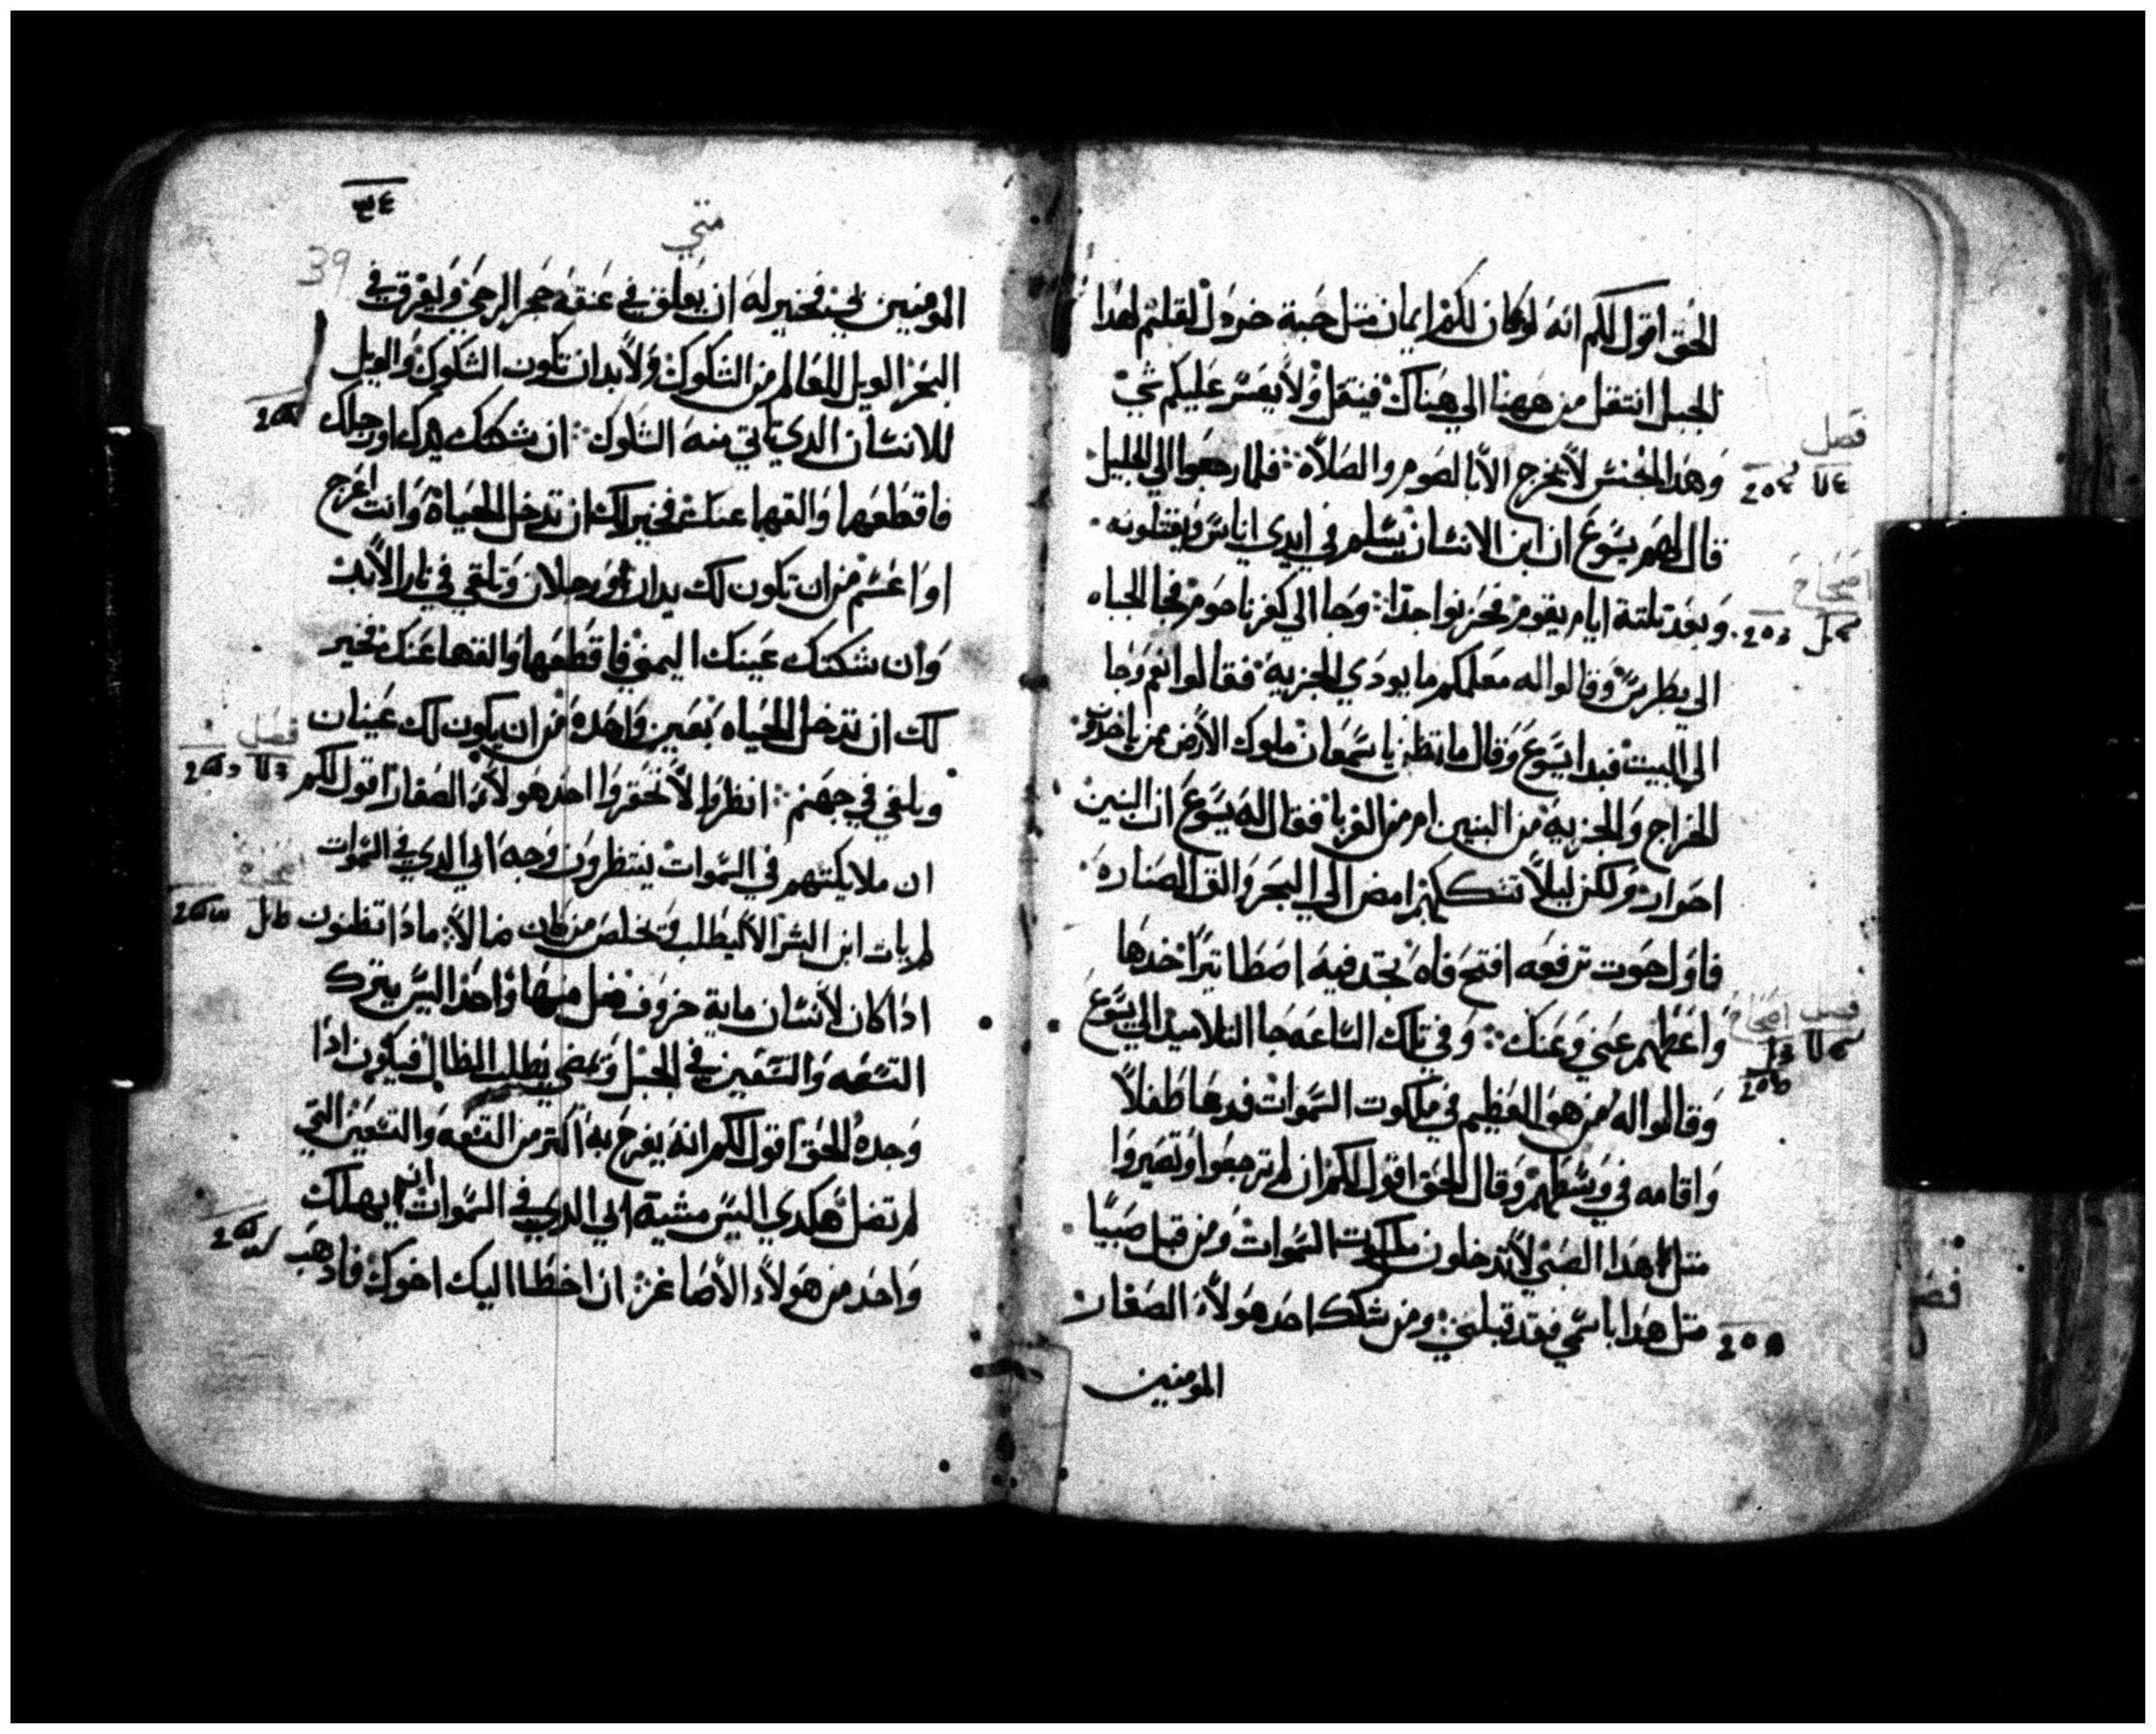 الحق اقول لكم انه لو كان لكم ايمان متل حبة خردل لقلتم لهدا
الجبل انتقل من ههنا الي هناك فينتقل ولا يعسر عليكم شي
فصل
وهدا الجنس لا يخرج الا بالصوم والصلاة فلما رجعوا الي الجليل
قال لهم يسوع ان ابن الانسان يسلم في ايدي اناس ويقتلونه
اصحاح
وبعد تلتة ايام يقوم فحزنوا جدا وجا الي كفرناحوم فجا الجباه
الي بطرس وقالوا له معلمكم ما يودي الجزية فقالوا نعم وجا
الي البيت فبدا يسوع وقال ما تظن يا سمعان ملوك الارض ممن ياخدون
الخراج والجزيه من البنين ام من الغربا فقال له يسوع ان البنين
احرار ولكن ليلا تشككهم امض الي البحر والق الصناره
فاول حوت ترفعه افتح فاه تجد فيه اصطاتيرا خدها
فصل اصحاح
واعطهم عني وعنك وفي تلك الساعه جا التلاميد الي يسوع
وقالوا له من هو العظيم في ملكوت السموات فدعا طفلا
واقامه في وسطهم وقال الحق اقول لكم ان لم ترجعوا وتصيروا
متل هدا الصبي لا تدخلون ملكوت السموات ومن قبل صبيا
متل هدا باسمي فقد قبلني ومن شكك احد هولاء الصغار
المومنين
٣٤
متي
39
المومنين بي فخير له ان يعلق في عنقه حجر الرحي ويغرق في
البحر الويل للعالم من الشكوك ولا بد ان تكون الشكوك والويل
للانسان الدي تاتي منه الشكوك ان شكتك يدك او رجلك
فاقطعها والقها عنك فخير لك ان تدخل الحياة وانت اعرج
او اعسم من ان تكون لك يدان او رجلان وتلقي في نار الابد
وان شكتك عينك اليمني فاقطعها والقها عنك فخير
لك ان تدخل الحياه بعين واحده من ان يكون لك عينان
فصل
ويلقي في جهنم انظروا لا تحقروا احد هولاء الصغار اقول لكم
ان ملايكتهم في السموات ينتظرون وجه ابي الدي في السموات
لم يات ابن البشر الا ليطلب ويخلص من كان ضالا مادا تظنون
ادا كان لانسان ماية خروف فضل منها واحد اليس يترك
التسعه والتسعين في الجبل ويمضي يطلب الظال فيكون ادا
وجده الحق اقول لكم انه يفرح به اكتر من التسعه والتسعين التي
لم تضل هكدي اليس مشية ابي الدي في السموات ان يهلك
واحد من هولاء الاصاغر ان اخطا اليك اخوك فادهب